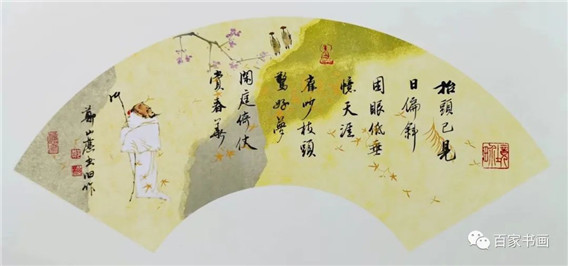 抬頭已見
日偏斜
困眼低垂
憶天涯
雀吵枝頭
驚好夢
閑庭倚仗
赏春華
百家书画